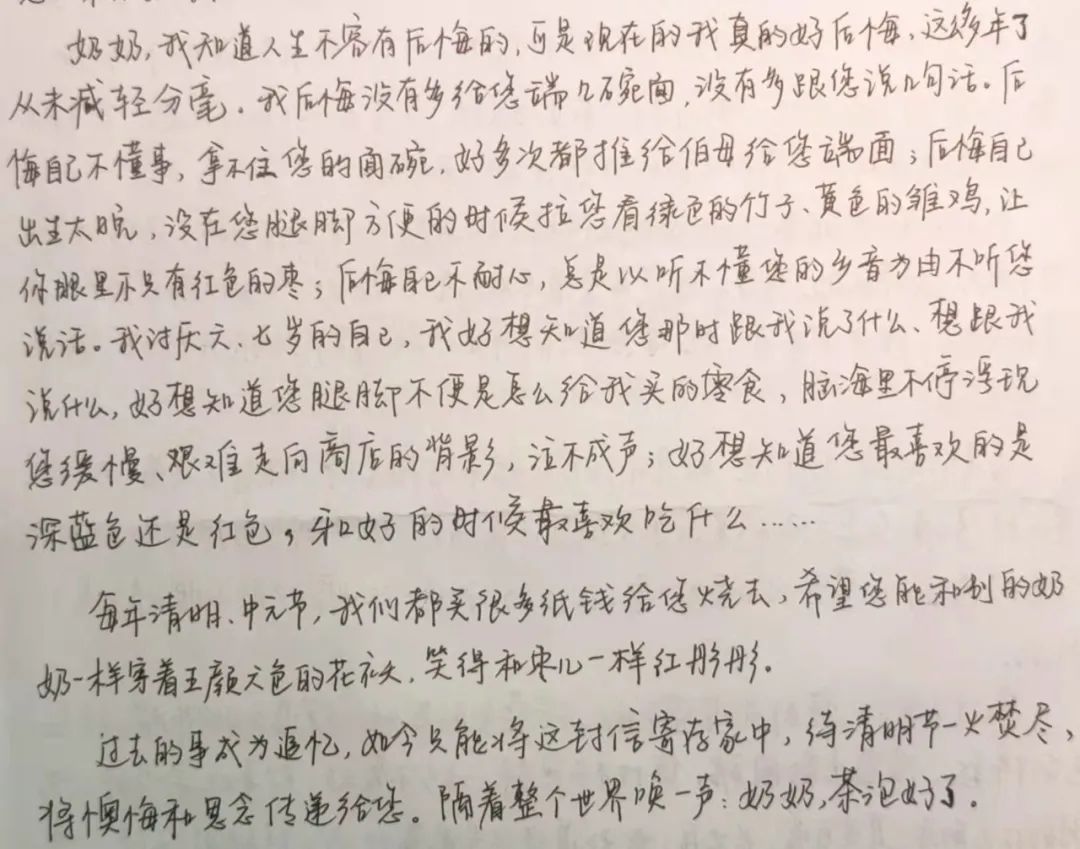 奶奶,我知道人生不容有后悔的,可是现在的我真的好后悔,这多年了
从未减轻分毫。我后悔没有多给您端几碗面,没有多跟您说几句话。后
悔自己不懂事,拿不住您的面碗,好多次都推给伯母给您端面;后悔自己
出生太晚,没在您腿脚方便的时候拉您看绿色的竹子、黄色的雏鸡,让
你眼里不只有红色的枣;后悔自己不耐心,总是以听不懂您的乡音为由不听您
说话。我讨厌六、七岁的自己,我好想知道您那时跟我说了什么、想跟我
说什么,好想知道您腿脚不便是怎么给我买的零食,脑海里不停浮现
您缓慢、艰难走向商店的背影,泣不成声;好想知道您最喜欢的是
深蓝色还是红色,牙口好的时候最喜欢吃什么……
每年清明、中元节,我们都买很多纸钱给您烧去,希望您能和别的奶
奶一样穿着五颜六色的花衣,笑得和枣儿一样红彤彤。
过去的事成为追忆,如今只能将这封信寄存家中,待清明节一火焚尽,
将懊悔和思念传递给您。隔着整个世界唤一声:奶奶,茶泡好了。